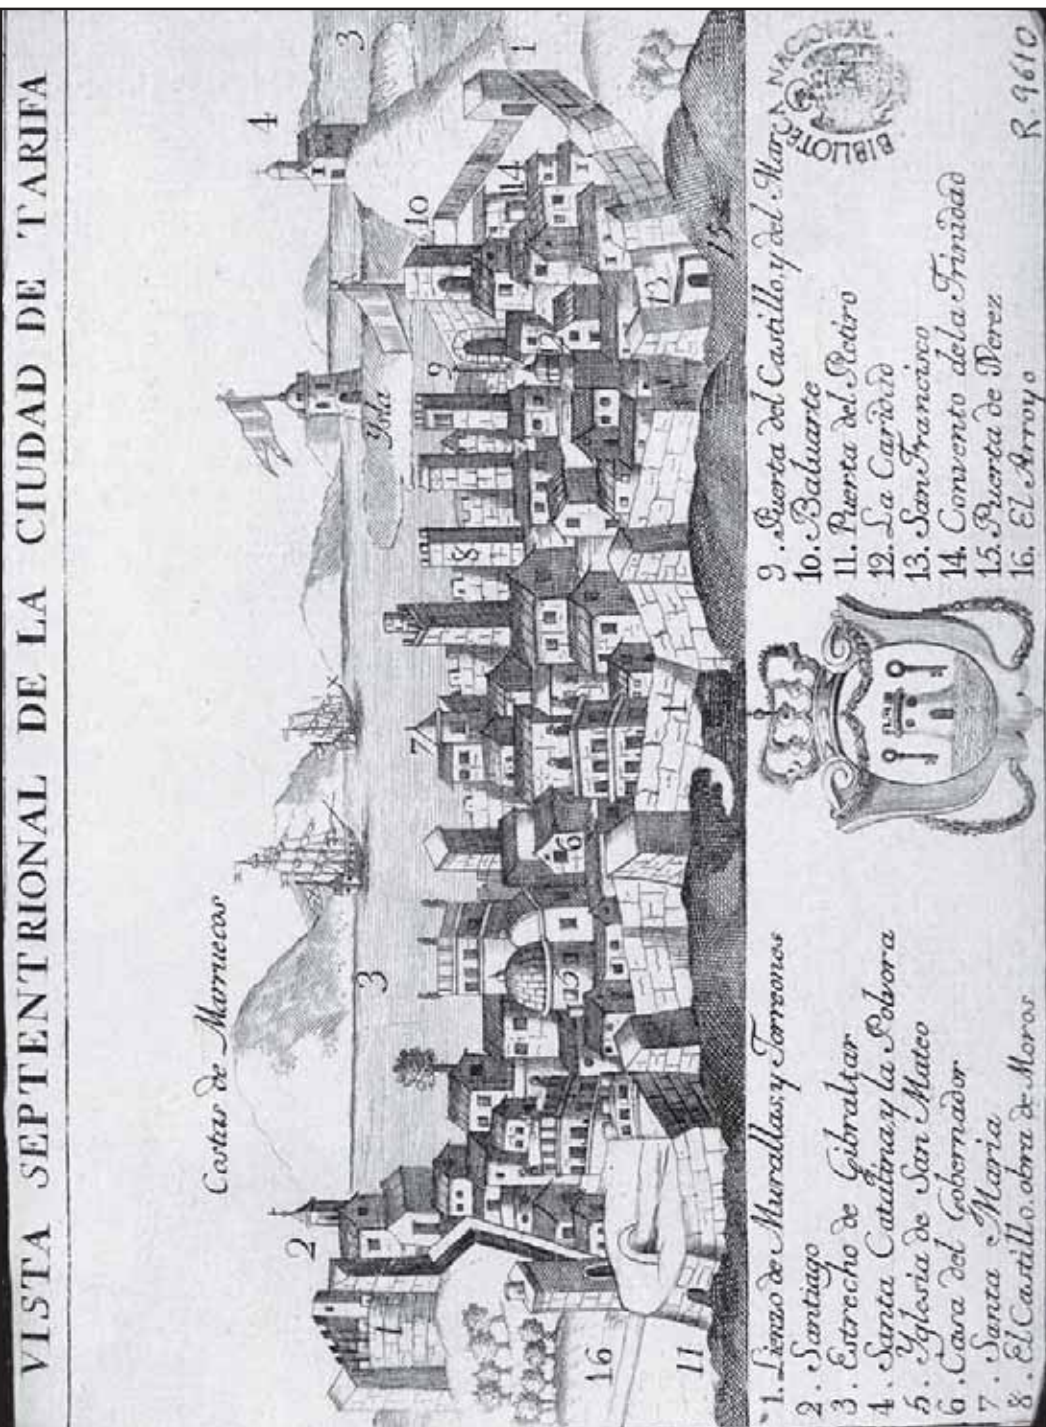 VISTA SEPTENTRIONAL DE LA CIUDAD DE TARIFA
Costas de Marruecos
Ysla
1
2
3
4
5
6
7
8
9
10
11
12
13
14
15
16
1
1
1
3
1. Lienzo de Murallas, y Torreones
2. Santiago
3. Estrecho de Gibraltar
4. Santa Catalina, y la Polvora
5. Yglesia de San Mateo
6. Casa del Gobernador
7. Santa Maria
8. El Castillo. obra de Moros
9. Puerta del Castillo, y del Mar
10. Baluarte
11. Puerta del
12. La Caridad
13. San Francisco
14. Convento de la Trinidad
15. Puerta de Xerez
16. El Arroyo
BIBLIOTECA NACIONAL
R. 9610